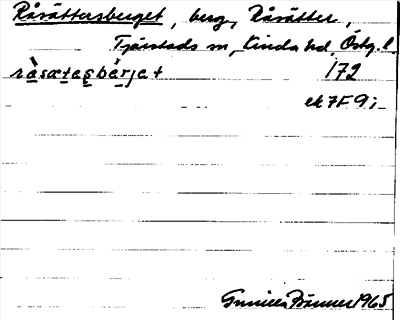 Råsättersberget, berg, Råsätter,
Tjärstads sn, Kinda hd, Östg. l.
ràsætasbárjat 172
ek 7F 9i
Gunilla Främner 1965